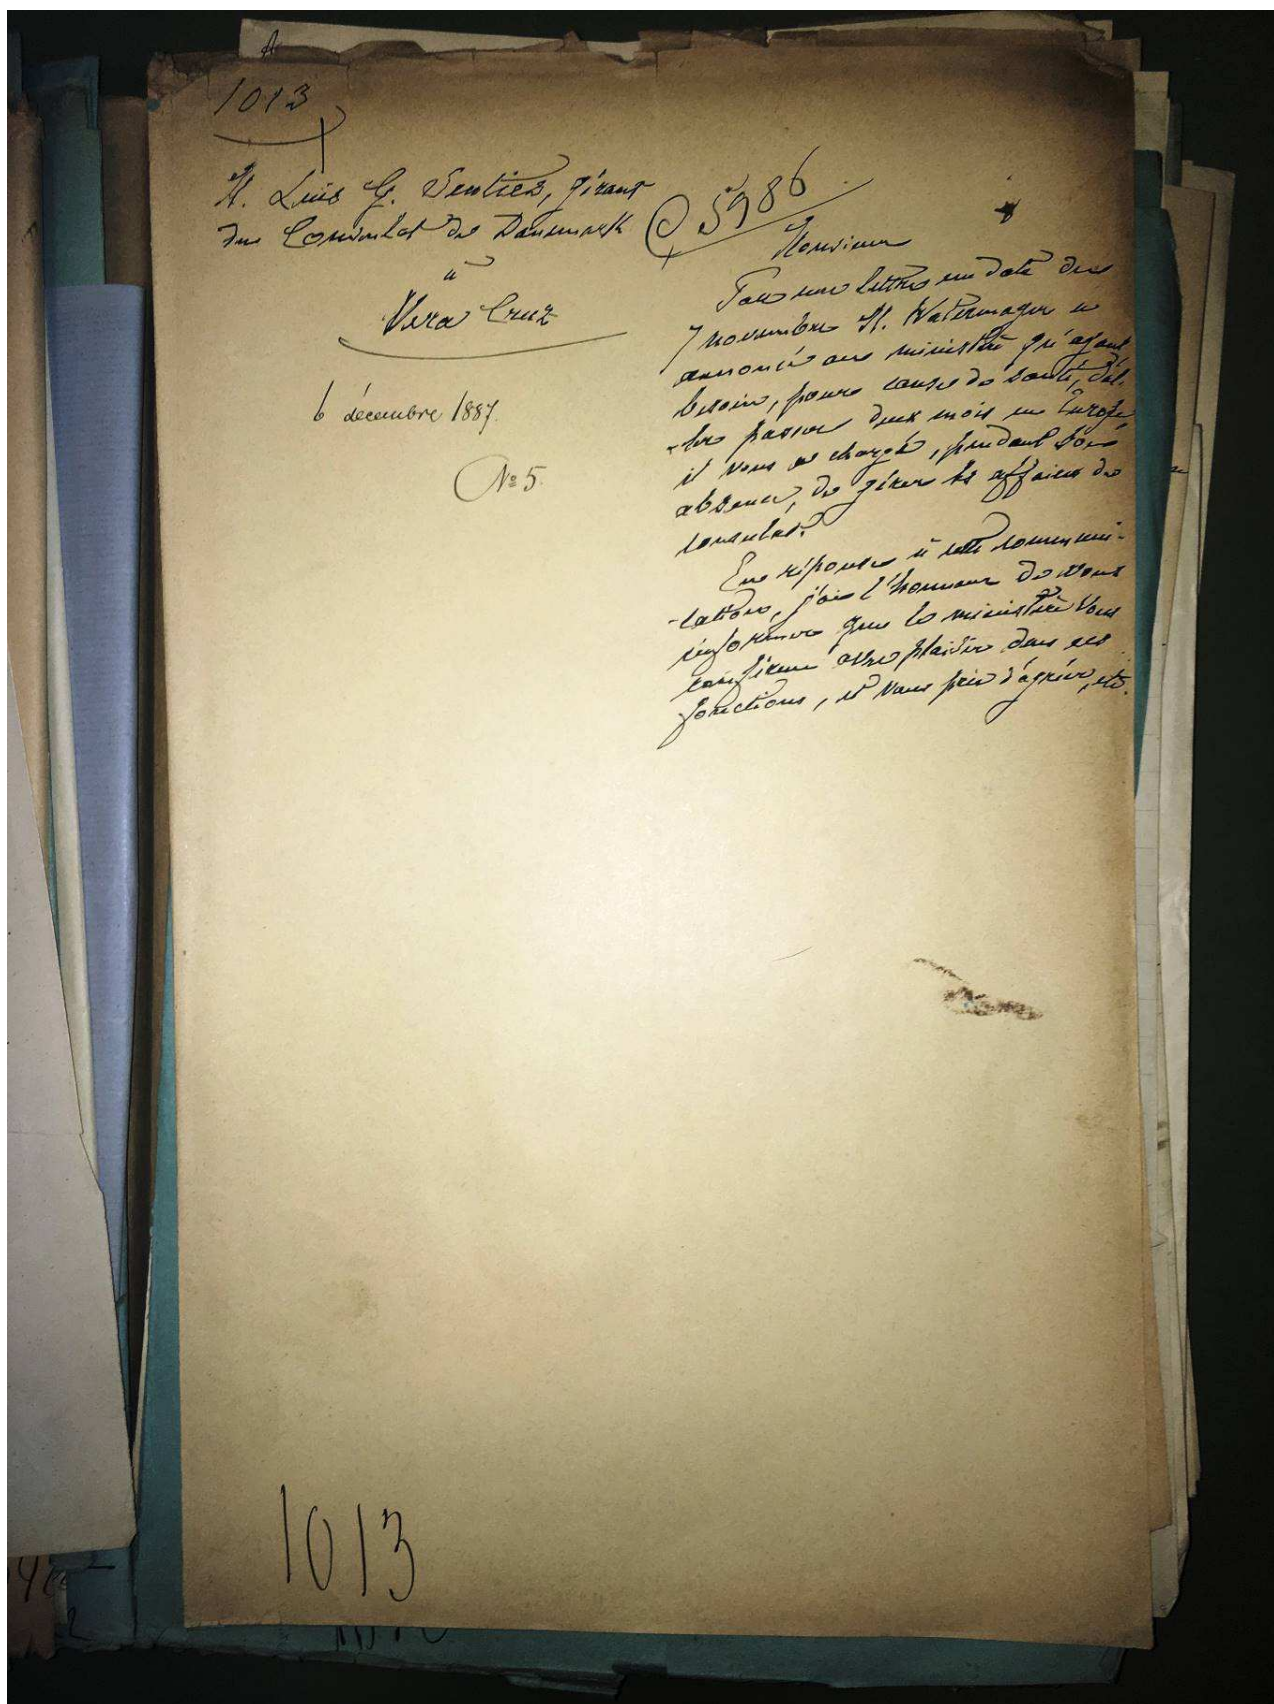 1013
M. Luis G. Sentiez, gérant
du Consulat de Danemark
à
Vera Cruz
6 décembre 1887.
No 5.
5986
Monsieur
Par une lettre en date du
7 novembre M. Watermayer a
annoncé au ministère qu'ayant
besoin, pour cause de santé, d'al-
-ler passer deux mois en Europe
il vous a chargé, pendant son
absence, de gérer les affaires du
consulat.
En réponse à cette communi-
-cation, j'ai l'honneur de vous
informer que le ministère vous
confirme avec plaisir dans ces
fonctions, et vous prie d'agréer, etc.
1013